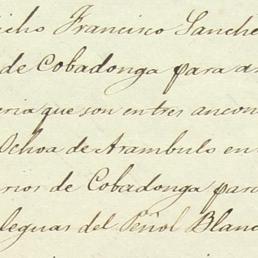 icho Francisco Sanche
de Cobadonga para a
eria que son entres ancon
Ochoa de Arambulo en
rios de Cobadonga par
leguas del Peñol Blanc